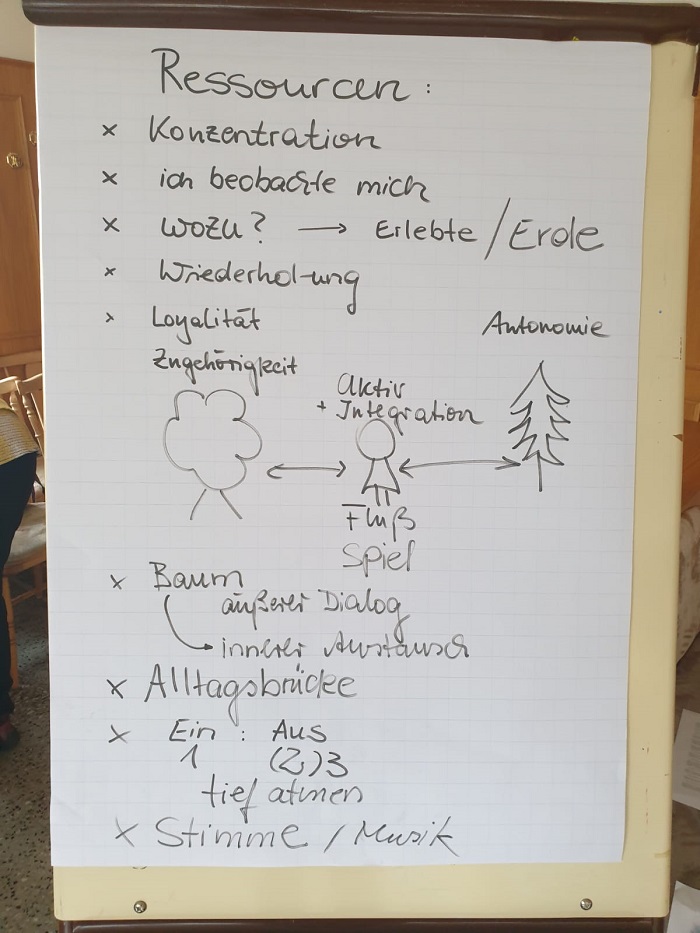 Ressourcen:
x Konzentration
x ich beobachte mich
x wozu? → Erlebte / Erde
x Wiederhol-ung
x Loyalität
Autonomie
Zugehörigkeit
aktiv
+ Integration
Fluß
Spiel
x Baum
äußerer Dialog
innerer Austausch
x Alltagsbrücke
x Ein : Aus
1 (2)3
tief atmen
x Stimme / Musik